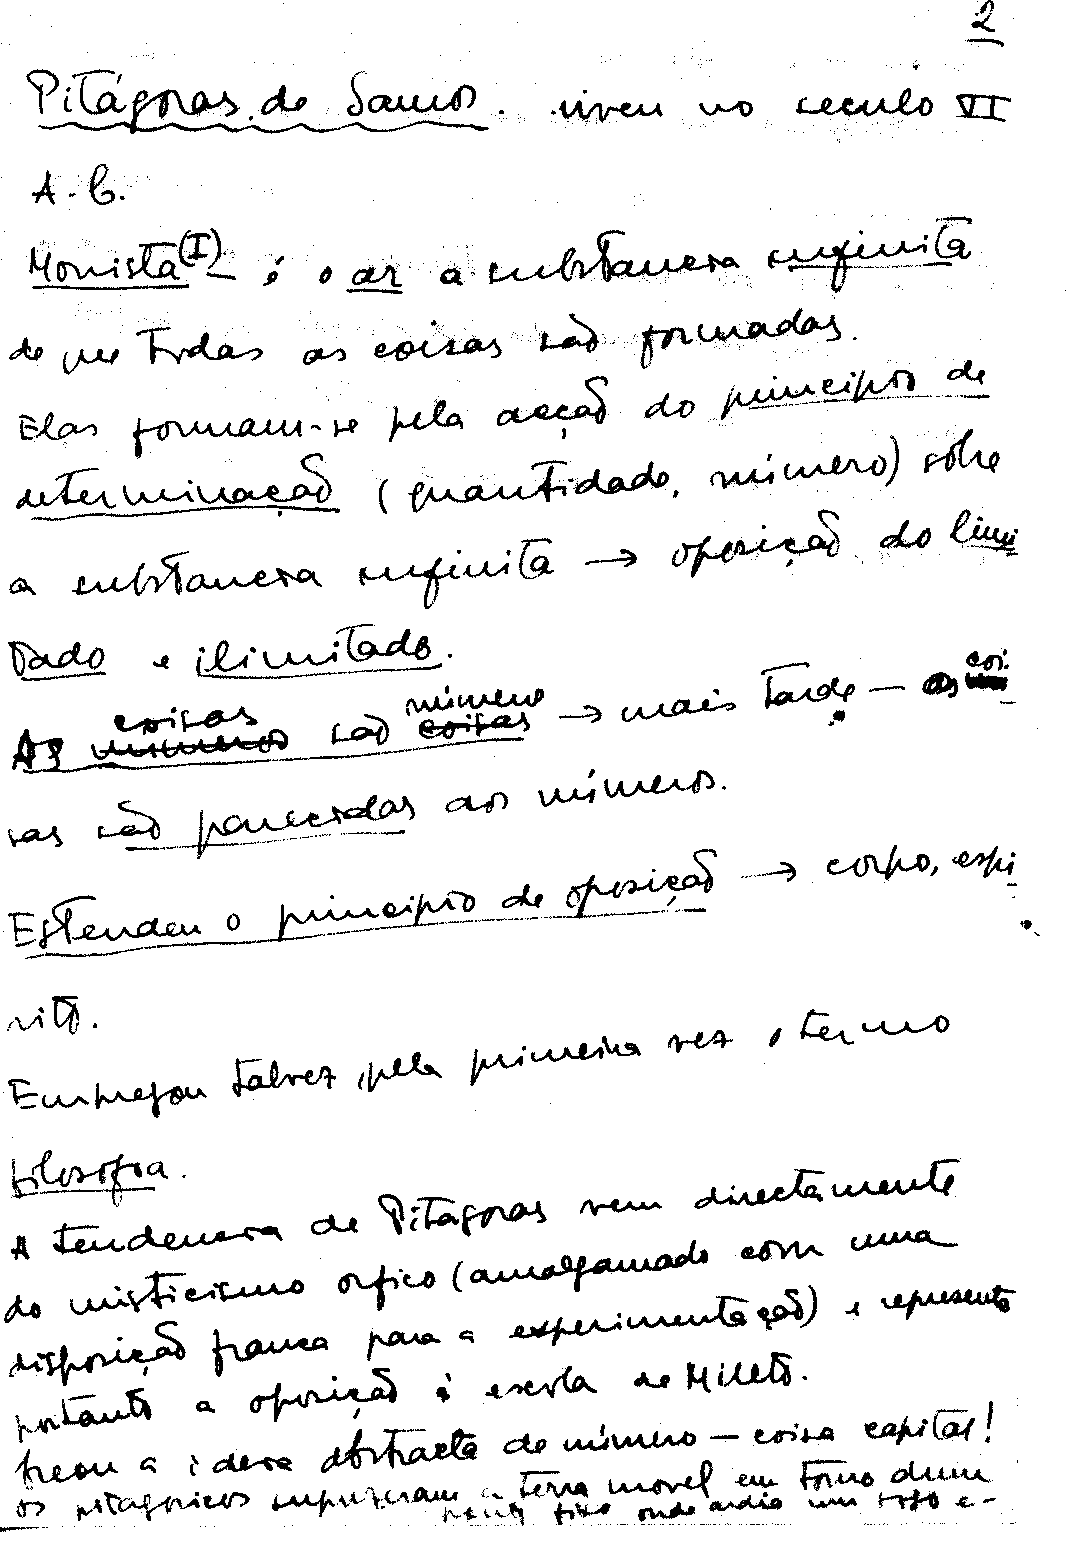 2
Pitágoras de Samos. viveu no seculo VI
A.C.
Monista (I) é o ar a substancia infinita
de que todas as coisas são formadas.
Elas formam-se pela acção do principio de
determinação (quantidade, número) sôbre
a substancia infinita → oposição do limi
tado e ilimitado.
As numeros coisas são coisas número → mais tarde — as coi.
sas são parecidas aos números.
Estendeu o principio de oposição → corpo, espi
rito.
Empregou talvez, pela primeira vez o termo
filosofia.
A tendencia de Pitágoras vem directamente
do misticismo orfico (amalgamado com uma
disposição franca para a experimentação) e representa
portanto a oposição á escola de Mileto.
Creou a idéia abstracta de número — coisa capital!
os pitagoricos supuzeram a terra movel em torno dum
ponto fixo onde ardia um fogo e-